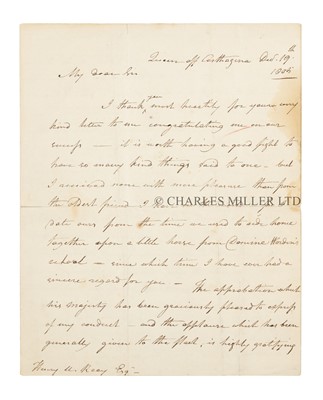 Queen off Carthagena Decr. 19th
1805
My dear Sir
I thank you most heartily for yours very
kind letter to me congratulating me on our
success – it is worth having a good fight to
have so many kind things said to one, but
I received none with more pleasure than from
the oldest friend I
© CHARLES MILLER LTD
date ours from the time we used to ride home
together upon a little horse from
school – since which time I have ever had a
sincere regard for you – The approbation which
his Majesty has been graciously pleased to express
of my conduct – and the applause which has been
generally given to the fleet, is highly gratifying
Henry U. Reay Esqr –